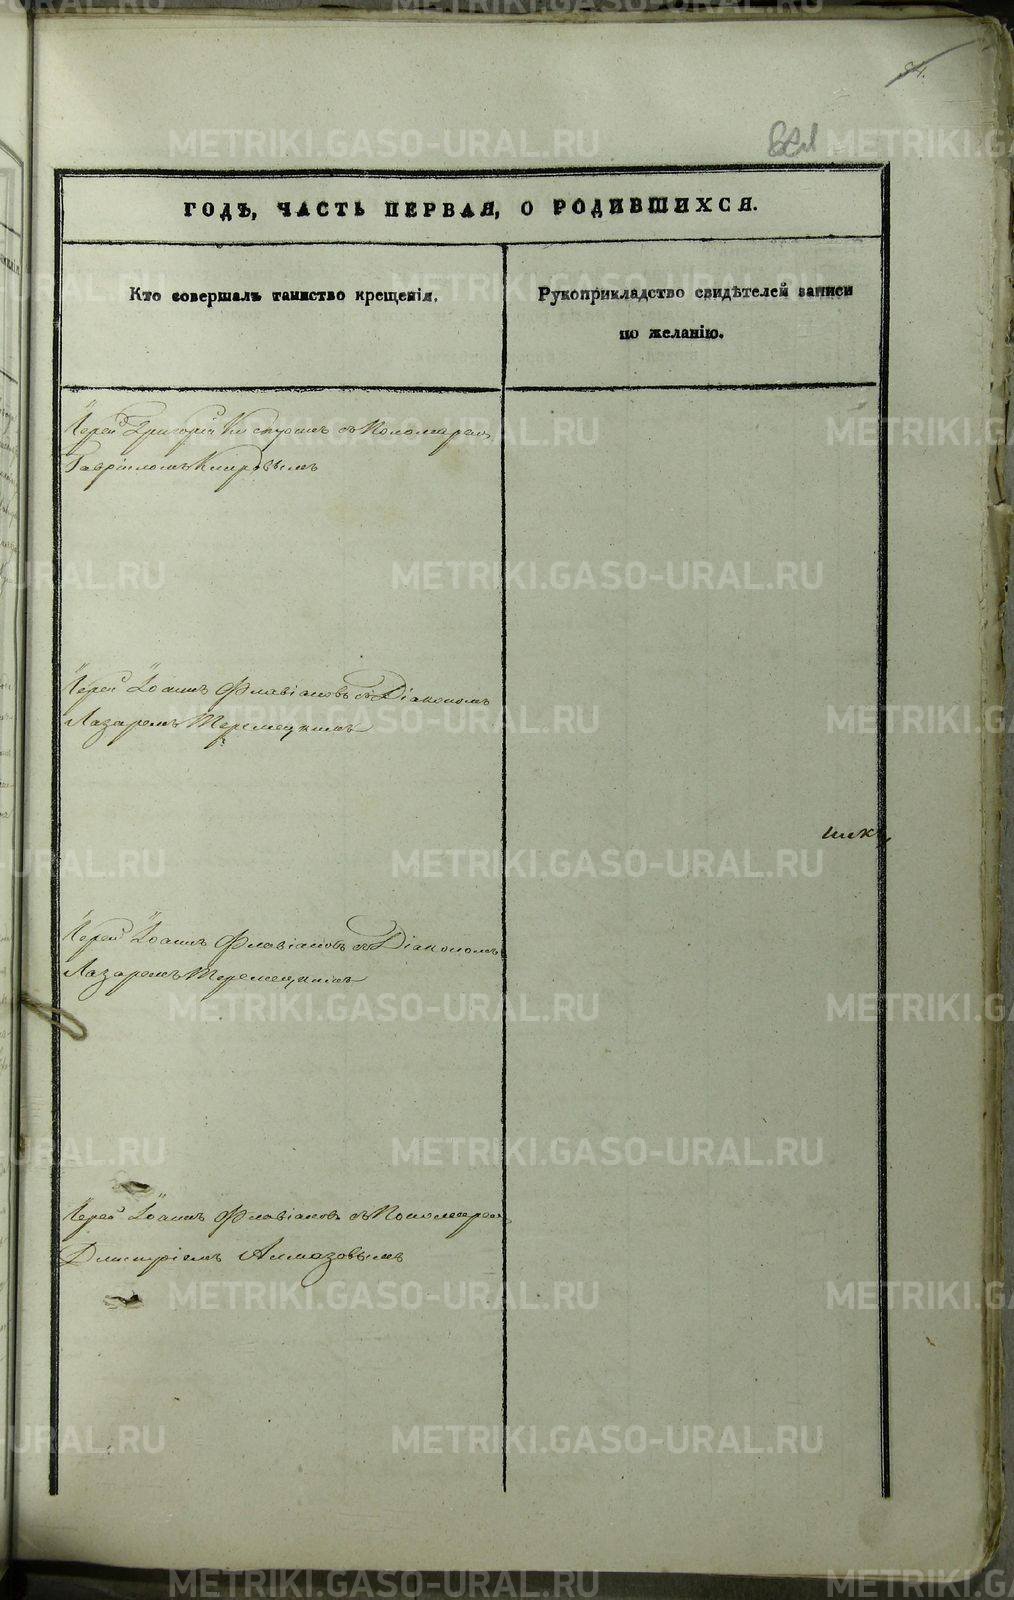 54.
ГОДЪ, ЧАСТЬ ПЕРВАЯ, О РОДИВШИХСЯ.
Кто совершалъ таинство крещенія.
Рукоприкладство свидѣтелей записи
по желанію.
Іерей Григорій съ Пономаремъ
Гавріиломъ Кировымъ
Іерей Іоаннъ Флавіановъ съ Діакономъ
Лазаремъ Теремецкимъ
Іерей Іоаннъ Флавіановъ съ Діакономъ
Лазаремъ Теремецкимъ
Іерей Іоаннъ Флавіановъ съ Пономаремъ
Димитріемъ Алмазовымъ
METRIKI.GASO-URAL.RU